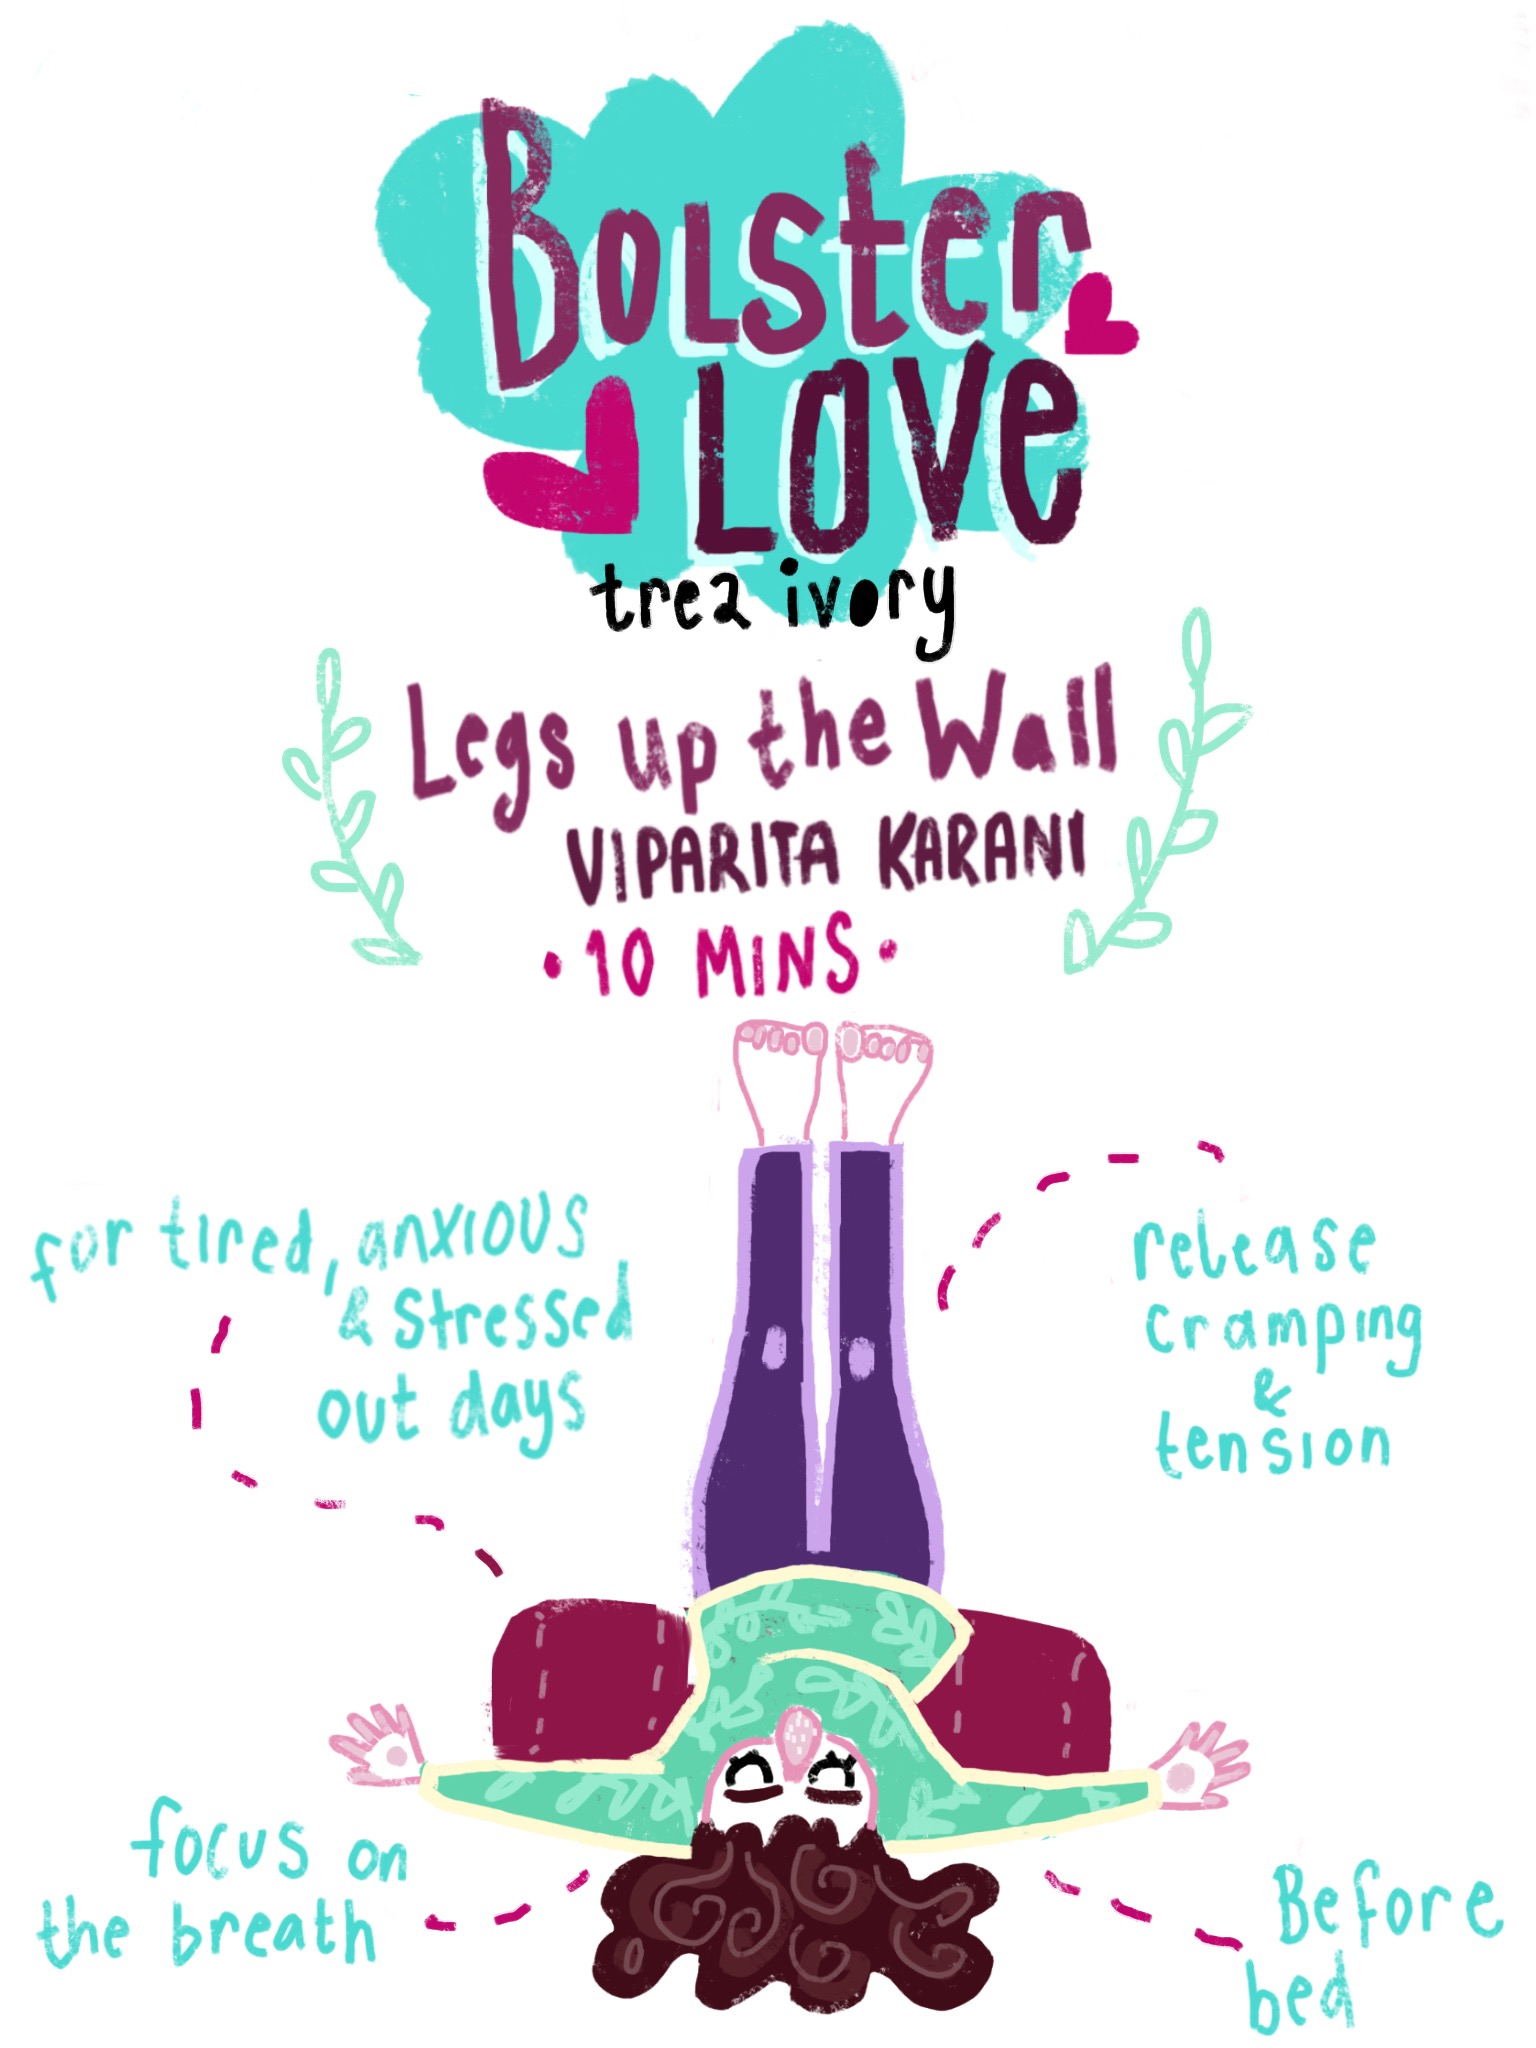 Bolster
LOVE
trea ivory
Legs up the Wall
VIPARITA KARANI
• 10 MINS •
for tired, anxious
& stressed
out days
release
cramping
&
tension
focus on
the breath
Before
bed